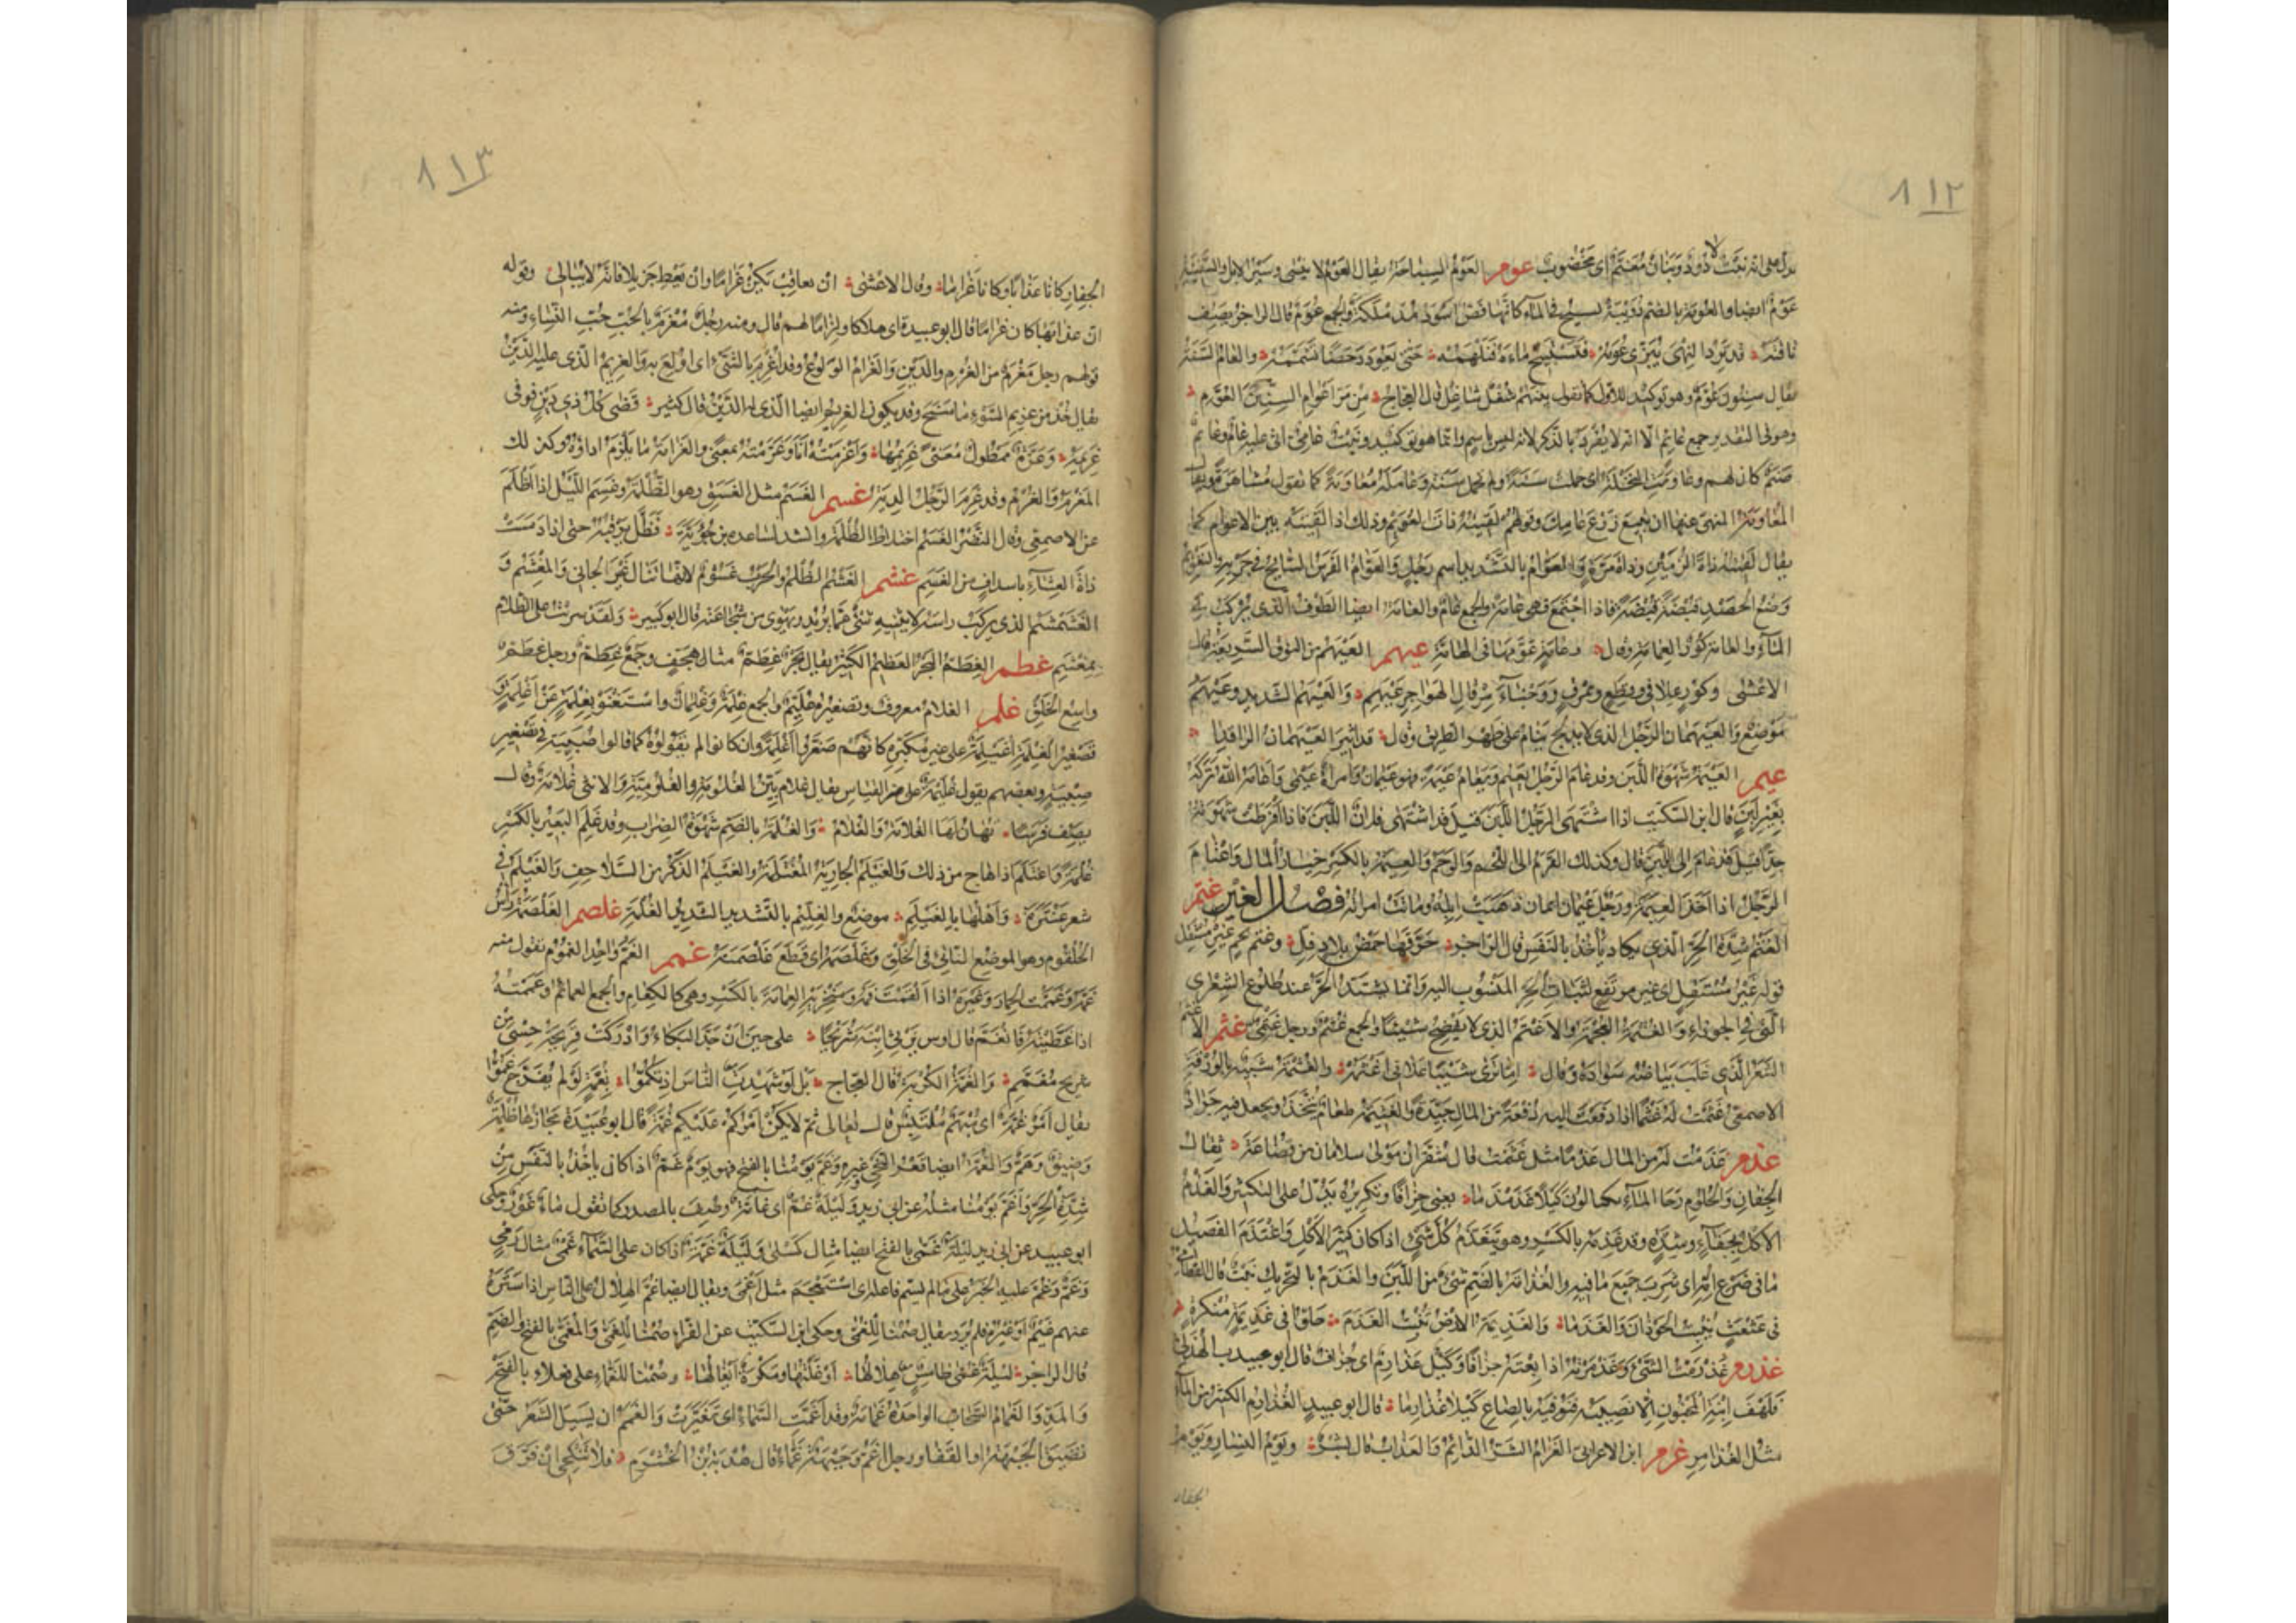 ٨١٢
يدل على انه نعت لا ذود وبنان معنم اى مخضوب عوم العوم السباحة يقال العوم لا ينسى وسير الابل والسفينة
عوم ايضا والعومة بالضم دويبة تسبح فى الماء كانها فص اسود مدملكة والجمع عوم قال الراجز يصف
ناقته قد ترد النهى تنزى عومه فتستبيح ماءه فتلهمه حتى يعود دحضا تشممه والعام السنة
يقال سنون عوم وهو توكيد للاول كما تقول بينهم شغل شاغل قال العجاج من مر اعوام السنين العوم
وهو فى التقدير جمع عائم الا انه لا يفرد بالذكر لانه ليس باسم وانما هو توكيد ونبت عامى اتى عليه عام
صنم كان لهم وعاومت النخلة اى حملت سنة ولم تحمل سنة وعامله معاومة كما تقول مشاهرة ويقال
المعاومة المنهى عنها ان تبيع زرع عامك وقولهم لقيته ذات العويم وذلك اذا لقيته بين الاعوام كما
يقال لقيته ذات الزمين وذات مرة والعوام بالتشديد اسم رجل والعوام الفرس السابح فى جريه والتعويم
وضع الحصد قبضة قبضة فاذا اجتمع فهى عامة والجمع عام والعامة ايضا الطوف الذى يركب فى
الماء والعامة كور العمامة وقال وعامة عومها فى الهامة عيهم العيهم من النوق السريعة قال
الاعشى وكور علافى وقطع ونمرق ووجناء مرقال الهواجر عيهم والعيهم الشديد وعيهم
موضع والعيهمان الرجل الذى لا يدلج ينام على ظهر الطريق وقال قد اثير العيهمان الراقدا
عيم العيمة شهوة اللبن وقد عام الرجل يعيم ويعام عيمة فهو عيمان وامرأة عيمى واعامه الله تركه
بغير لبن قال ابن السكيت اذا اشتهى الرجل اللبن قيل قد اشتهى فلان اللبن فاذا افرطت شهوته
جدا قيل قد عام الى اللبن قال وكذلك القرم الى اللحم والوحم والعيمة بالكسر خيار المال واعتام
الرجل اذا اخذ العيمة ورجل عيمان ايمان ذهبت ابله وماتت امراته فصل الغين غتم
الغتم شدة الحر الذى يكاد يأخذ بالنفس قال الراجز حرقها حمض بلاد فل وغتم نجم غير مستقل
قوله غير مستقل اى غير مرتفع لثبات الحر المنسوب اليه وانما يشتد الحر عند طلوع الشعرى
التى فى الجوزاء والغتمة العجمة والاغتم الذى لا يفصح شيئا والجمع غتم ورجل غتمى غثم الاغثم
الشعر الذى غلب بياضه سواده وقال اما ترى شيبا علانى اغثمه والغثمة شبيه بالورقة
الاصمعى غثمت له غثما اذا دفعت اليه دفعة من المال جيدة والغثيمة طعام يتخذ ويجعل فيه جراد
غذم غذمت له من المال غذما مثل غثمت قال شقران مولى سلامان من قضاعة ثقال
الجفان والحلوم رحا الماء يكتالون كيلا غذمذما يعنى جزافا وتكريره يدل على التكثير والغذم
الاكل بجفاء وشدة وقد غذمه بالكسر وهو يتغذم كل شئ اذا كان كثير الاكل واغتذم الفصيل
ما فى ضرع امه اى شرب جميع ما فيه والغذامة بالضم شئ من اللبن والغذم بالتحريك نبت قال القطامى
فى عثعث ينبت الحوذان والغذما والغذيمة الارض تنبت الغذم حلوا فى غذيمة منكرة
غذرم غذرمت الشئ وغذمرته اذا بعته جزافا وكيل غذارم اى جزاف قال ابو جندب الهذلى
فلهف ابنة المجنون الا نصيبه فنوفيه بالصاع كيلا غذارما قال ابو عبيد الغذارم الكثير من الماء
مثل الغذامر غرم ابن الاعرابى الغرام الشر الدائم والعذاب قال بشر ويوم النسار ويوم
الجفار
٨١٣
الجفار كانا عذابا وكانا غراما وقال الاعشى ان يعاقب يكن غراما وان يعط جزيلا فانه لا يبالى وقوله
ان عذابها كان غراما قال ابو عبيدة اى هلاكا ولزاما لهم قال ومنه رجل مغرم بالحب حب النساء ومنه
قولهم رجل مغرم من الغرم والدين والغرام الولوع وقد اغرم بالشئ اى اولع به والغريم الذى عليه الدين
يقال خذ من غريم السوء ما سنح وقد يكون الغريم ايضا الذى له الدين قال كثير قضى كل ذى دين فوفى
غريمه وعزة ممطول معنى غريمها واغرمته انا وغرمته بمعنى والغرامة ما يلزم اداؤه وكذلك
المغرم والغرم وقد غرم الرجل الدية غسم الغسم مثل الغسق وهو الظلمة وغسم الليل اذا اظلم
عن الاصمعى وقال النضر الغسم اختلاط الظلمة وانشد لساعدة بن جؤية فظل يرقبه حتى اذا دمست
ذات العشاء باسداف من الغسم غشم الغشم الظلم والحرب غشوم لانها تنال غير الجانى والمغشم و
الغشمشم الذى يركب راسه لا يثنيه شئ عما يريد ويهوى من شجاعته قال ابو كبير ولقد سريت على الظلام
بمغشم غطم الغطم البحر العظيم الكثير يقال بحر غطم مثال هجف وجمع غطم ورجل غطم
واسع الخلق غلم الغلام معروف وتصغيره غليم والجمع غلمة وغلمان واستغنوا بغلمة عن اغلمة و
تصغير الغلمة اغيلمة على غير مكبره كانهم صغروا اغلمة وان كانوا لم يقولوه كما قالوا اصيبية فى تصغير
صبية وبعضهم يقول غليمة على القياس يقال غلام بين الغلومة والغلومية والانثى غلامة وقال
يصف فرسا تهان لها الغلامة والغلام والغلمة بالضم شهوة الضراب وقد غلم البعير بالكسر
غلمة واغتلم اذا هاج من ذلك والغيلم الجارية المغتلمة والغيلم الذكر من السلاحف والغيلم فى
شعر عنترة واهلها بالغيلم موضع والغليم بالتشديد الشديد الغلمة غلصم الغلصمة رأس
الحلقوم وهو الموضع الناتئ فى الحلق وغلصمه اى قطع غلصمته غمم الغم واحد الغموم تقول منه
غمه وغممت الحمار وغيره اذا القمت فمه ومنخريه الغمامة بالكسر وهى كالكعام والجمع الغمائم وغممته
اذا غطيته فانغم قال اوس يرثى ابنه شريحا على حين ان جد الذكاء وادركت قريحة حسى من
شريح مغمم والغمة الكربة قال العجاج بل لو شهدت الناس اذ تكموا بغمة لو لم تفرج غموا
يقال امر غمة اى مبهم ملتبس قال تعالى ثم لا يكن امركم عليكم غمة قال ابو عبيدة مجازها ظلمة
وضيق وهم والغمة ايضا قعر النحى وغيره وغم يومنا بالفتح فهو يوم غم اذا كان ياخذ بالنفس من
شدة الحر واغم يومنا مثله عن ابى زيد وليلة غم اى غامة وصف بالمصدر كما تقول ماء غور وحكى
ابو عبيد عن ابى زيد ليلة غمى بالفتح ايضا مثال كسلى وليلة غمة اذا كان على السماء غمى مثال رمى
وغم وغم عليه الخبر على ما لم يسم فاعله اى استعجم مثل اغمى ويقال ايضا غم الهلال على الناس اذا ستره
عنهم غيم او غيره فلم ير ويقال صمنا للغمى وحكى ابن السكيت عن الفراء صمنا للغمى وللغمى بالفتح والضم
قال الراجز ليلة غمى طامس هلالها اوغلتها ومكره ايغالها وصمنا للغماء على فعلاء بالفتح
والمد والغمام السحاب الواحدة غمامة وقد اغمت السماء اى تغيرت والغمم ان يسيل الشعر حتى
تضيق الجبهة او القفا ورجل اغم وجبهة غماء قال هدبة بن الخشرم فلا تنكحى ان فرق